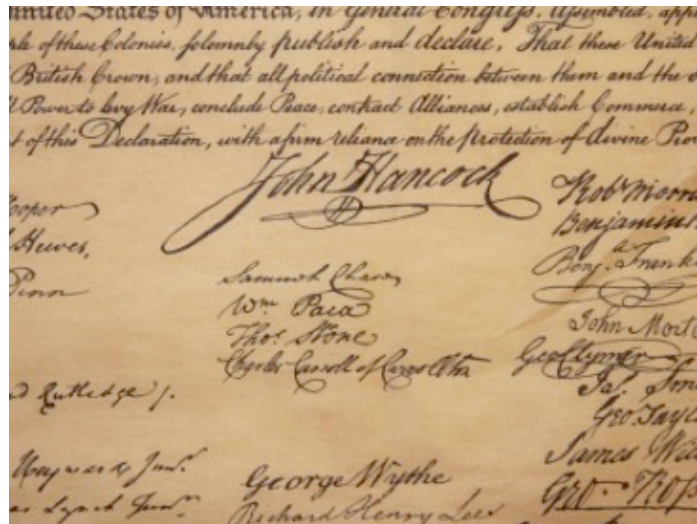 United States of America, in General Congress, Assembled, app
ple of these Colonies, solemnly publish and declare, That these United
British Crown, and that all political connection between them and the
Power to levy War, conclude Peace, contract Alliances, establish Commerce
t of this Declaration, with a firm reliance on the protection of divine Prov
John Hancock
Hooper
Hewes,
Penn
d Rutledge /.
Heyward Junr.
as Lynch Junr.
Samuel Chase
Wm. Paca
Thos. Stone
Charles Carroll of Carrollton
George Wythe
Richard Henry Lee
Robt Morr
Benjamin
Benj. Frankl
John Mort
Geo Clymer
Jas. Smi
Geo. Tayl
James Wil
Geo. Ross